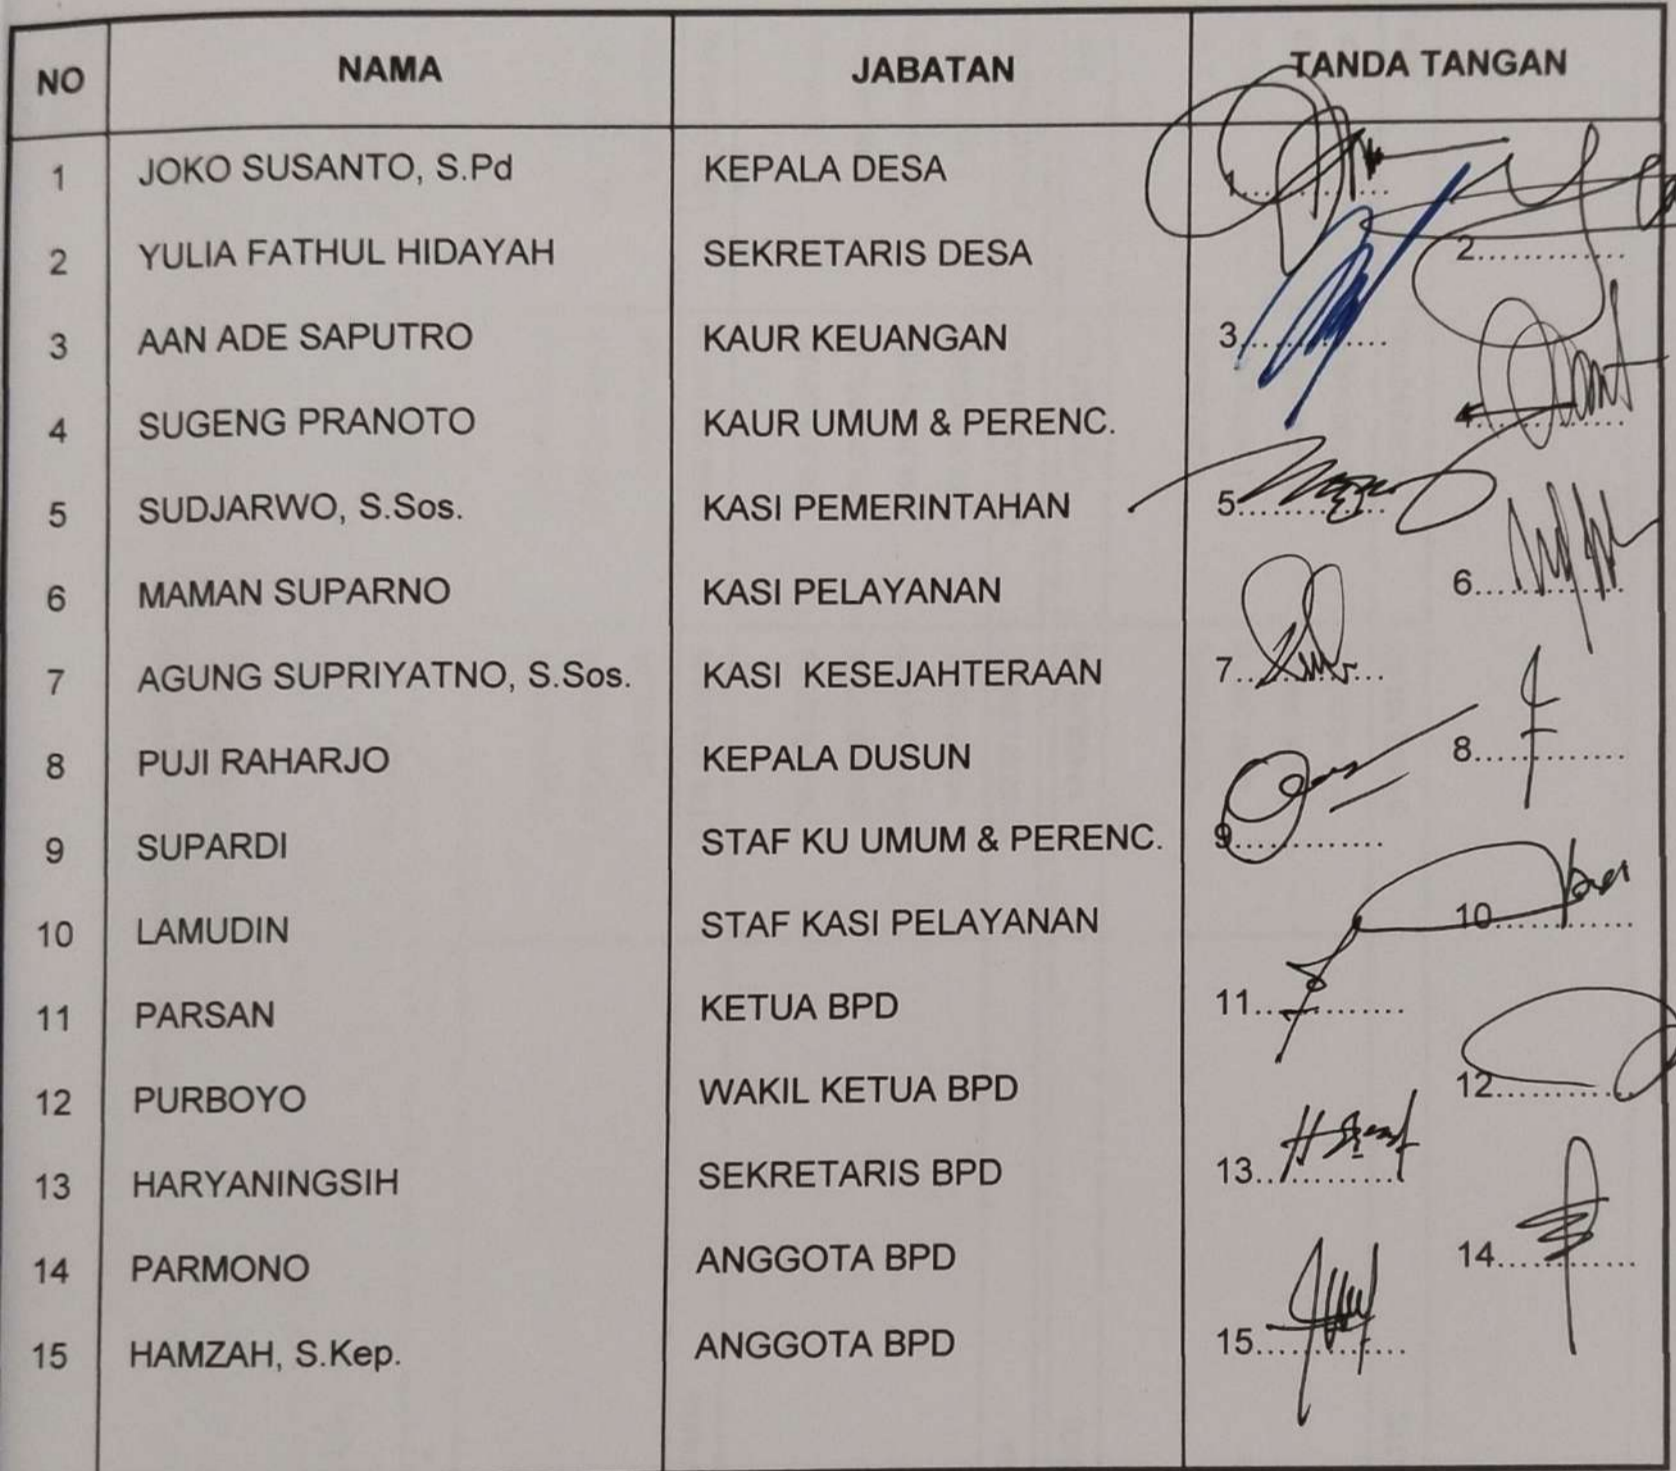 NO NAMA JABATAN TANDA TANGAN
1 JOKO SUSANTO, S.Pd KEPALA DESA 1.............
2 YULIA FATHUL HIDAYAH SEKRETARIS DESA 2.............
3 AAN ADE SAPUTRO KAUR KEUANGAN 3.............
4 SUGENG PRANOTO KAUR UMUM & PERENC. 4.............
5 SUDJARWO, S.Sos. KASI PEMERINTAHAN 5.............
6 MAMAN SUPARNO KASI PELAYANAN 6.............
7 AGUNG SUPRIYATNO, S.Sos. KASI  KESEJAHTERAAN 7.............
8 PUJI RAHARJO KEPALA DUSUN 8.............
9 SUPARDI STAF KU UMUM & PERENC. 9.............
10 LAMUDIN STAF KASI PELAYANAN 10.............
11 PARSAN KETUA BPD 11.............
12 PURBOYO WAKIL KETUA BPD 12.............
13 HARYANINGSIH SEKRETARIS BPD 13.............
14 PARMONO ANGGOTA BPD 14.............
15 HAMZAH, S.Kep. ANGGOTA BPD 15.............